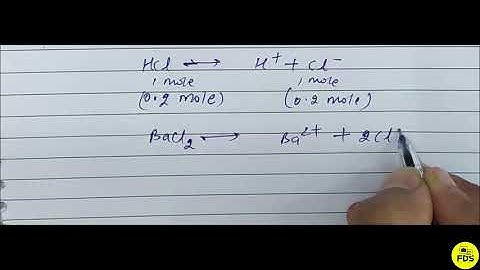 HCl ⇌ H⁺ + Cl⁻
1 mole 1 mole
(0.2 mole) (0.2 mole)
BaCl₂ ⇌ Ba²⁺ + 2Cl
FDS